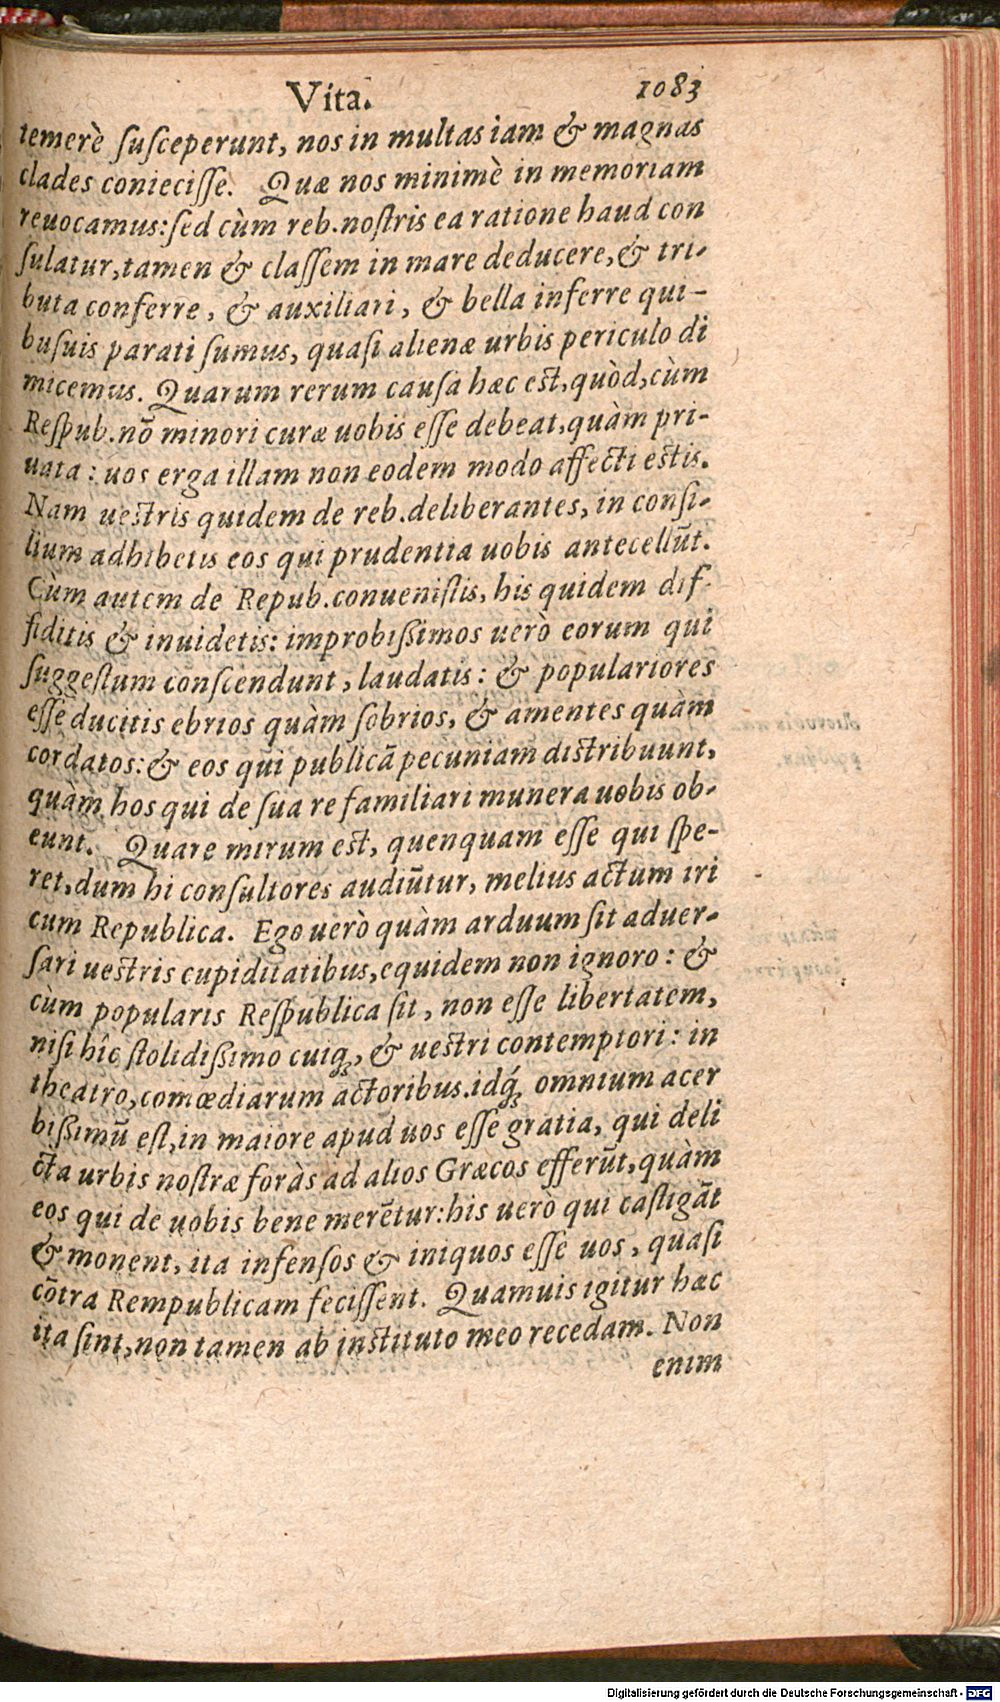 Vita. 1083
temerè ſuſceperunt, nos in multas iam & magnas
clades conieciſſe. Quæ nos minimè in memoriam
reuocamus: ſed cùm reb. noſtris ea ratione haud con
ſulatur, tamen & claſſem in mare deducere, & tri-
buta conferre, & auxiliari, & bella inferre qui-
buſuis parati ſumus, quaſi alienæ urbis periculo di
micemus. Quarum rerum cauſa hæc eſt, quòd, cùm
Reſpub. nō minori curæ uobis eſſe debeat, quàm pri-
uata: uos erga illam non eodem modo affecti eſtis.
Nam ueſtris quidem de reb. deliberantes, in conſi-
lium adhibetis eos qui prudentia uobis antecellūt.
Cùm autem de Repub. conueniſtis, his quidem dif-
fiditis & inuidetis: improbiſsimos uerò eorum qui
ſuggeſtum conſcendunt, laudatis: & populariores
eſſe ducitis ebrios quàm ſobrios, & amentes quàm
cordatos: & eos qui publicā pecuniam diſtribuunt,
quàm hos qui de ſua re familiari munera uobis ob-
eunt. Quare mirum eſt, quenquam eſſe qui ſpe-
ret, dum hi conſultores audiūtur, melius actum iri
cum Republica. Ego uerò quàm arduum ſit aduer-
ſari ueſtris cupiditatibus, equidem non ignoro: &
cùm popularis Reſpublica ſit, non eſſe libertatem,
niſi hîc ſtolidiſsimo cuiq;, & ueſtri contemptori: in
theatro, comœdiarum actoribus. idq́; omnium acer
biſsimū eſt, in maiore apud uos eſſe gratia, qui deli
cta urbis noſtræ foràs ad alios Græcos efferūt, quàm
eos qui de uobis bene merētur: his uerò qui caſtigāt
& monent, ita infenſos & iniquos eſſe uos, quaſi
cōtra Rempublicam feciſſent. Quamuis igitur hæc
ita ſint, non tamen ab inſtituto meo recedam. Non
enim
Digitalisierung gefördert durch die Deutsche Forschungsgemeinschaft - DFG